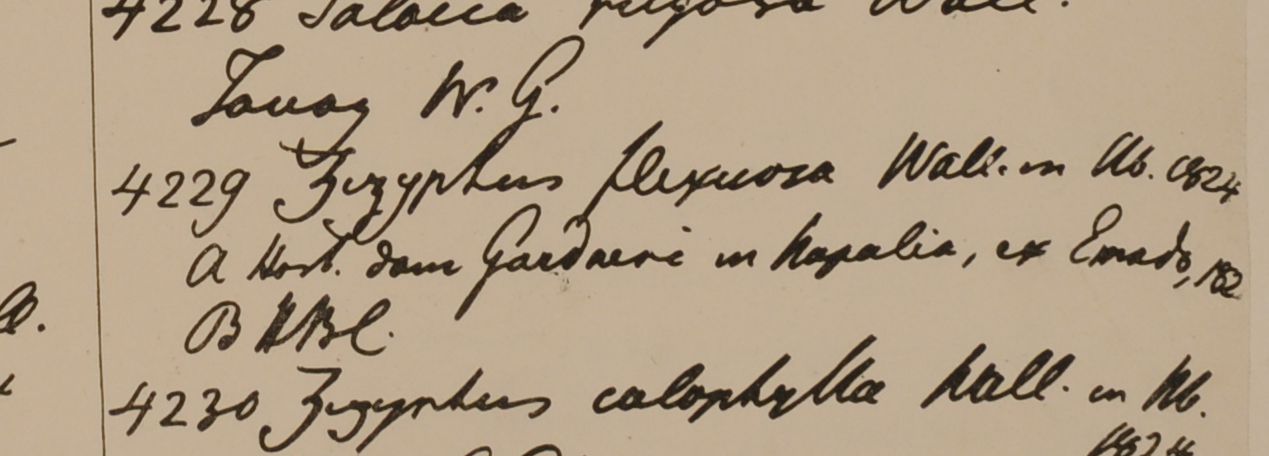 4228 Salacca rugosa Wall.
Tavoy W. G.
4229 Zizyphus flexuosa Wall. in Hb. 1824
A Hort. dom Gardneri in Napalia, ex Emodo, 182
B HBC.
4230 Zizyphus calophylla Wall. in Hb.
1824